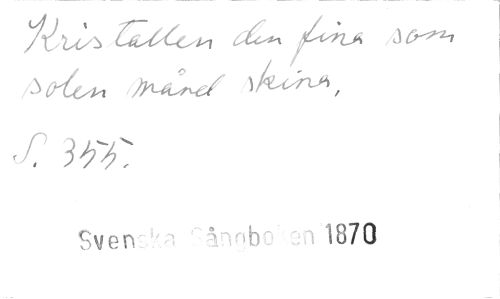 Kristallen den fina som
solen månd skina,
S. 355.
Svenska Sångboken 1870